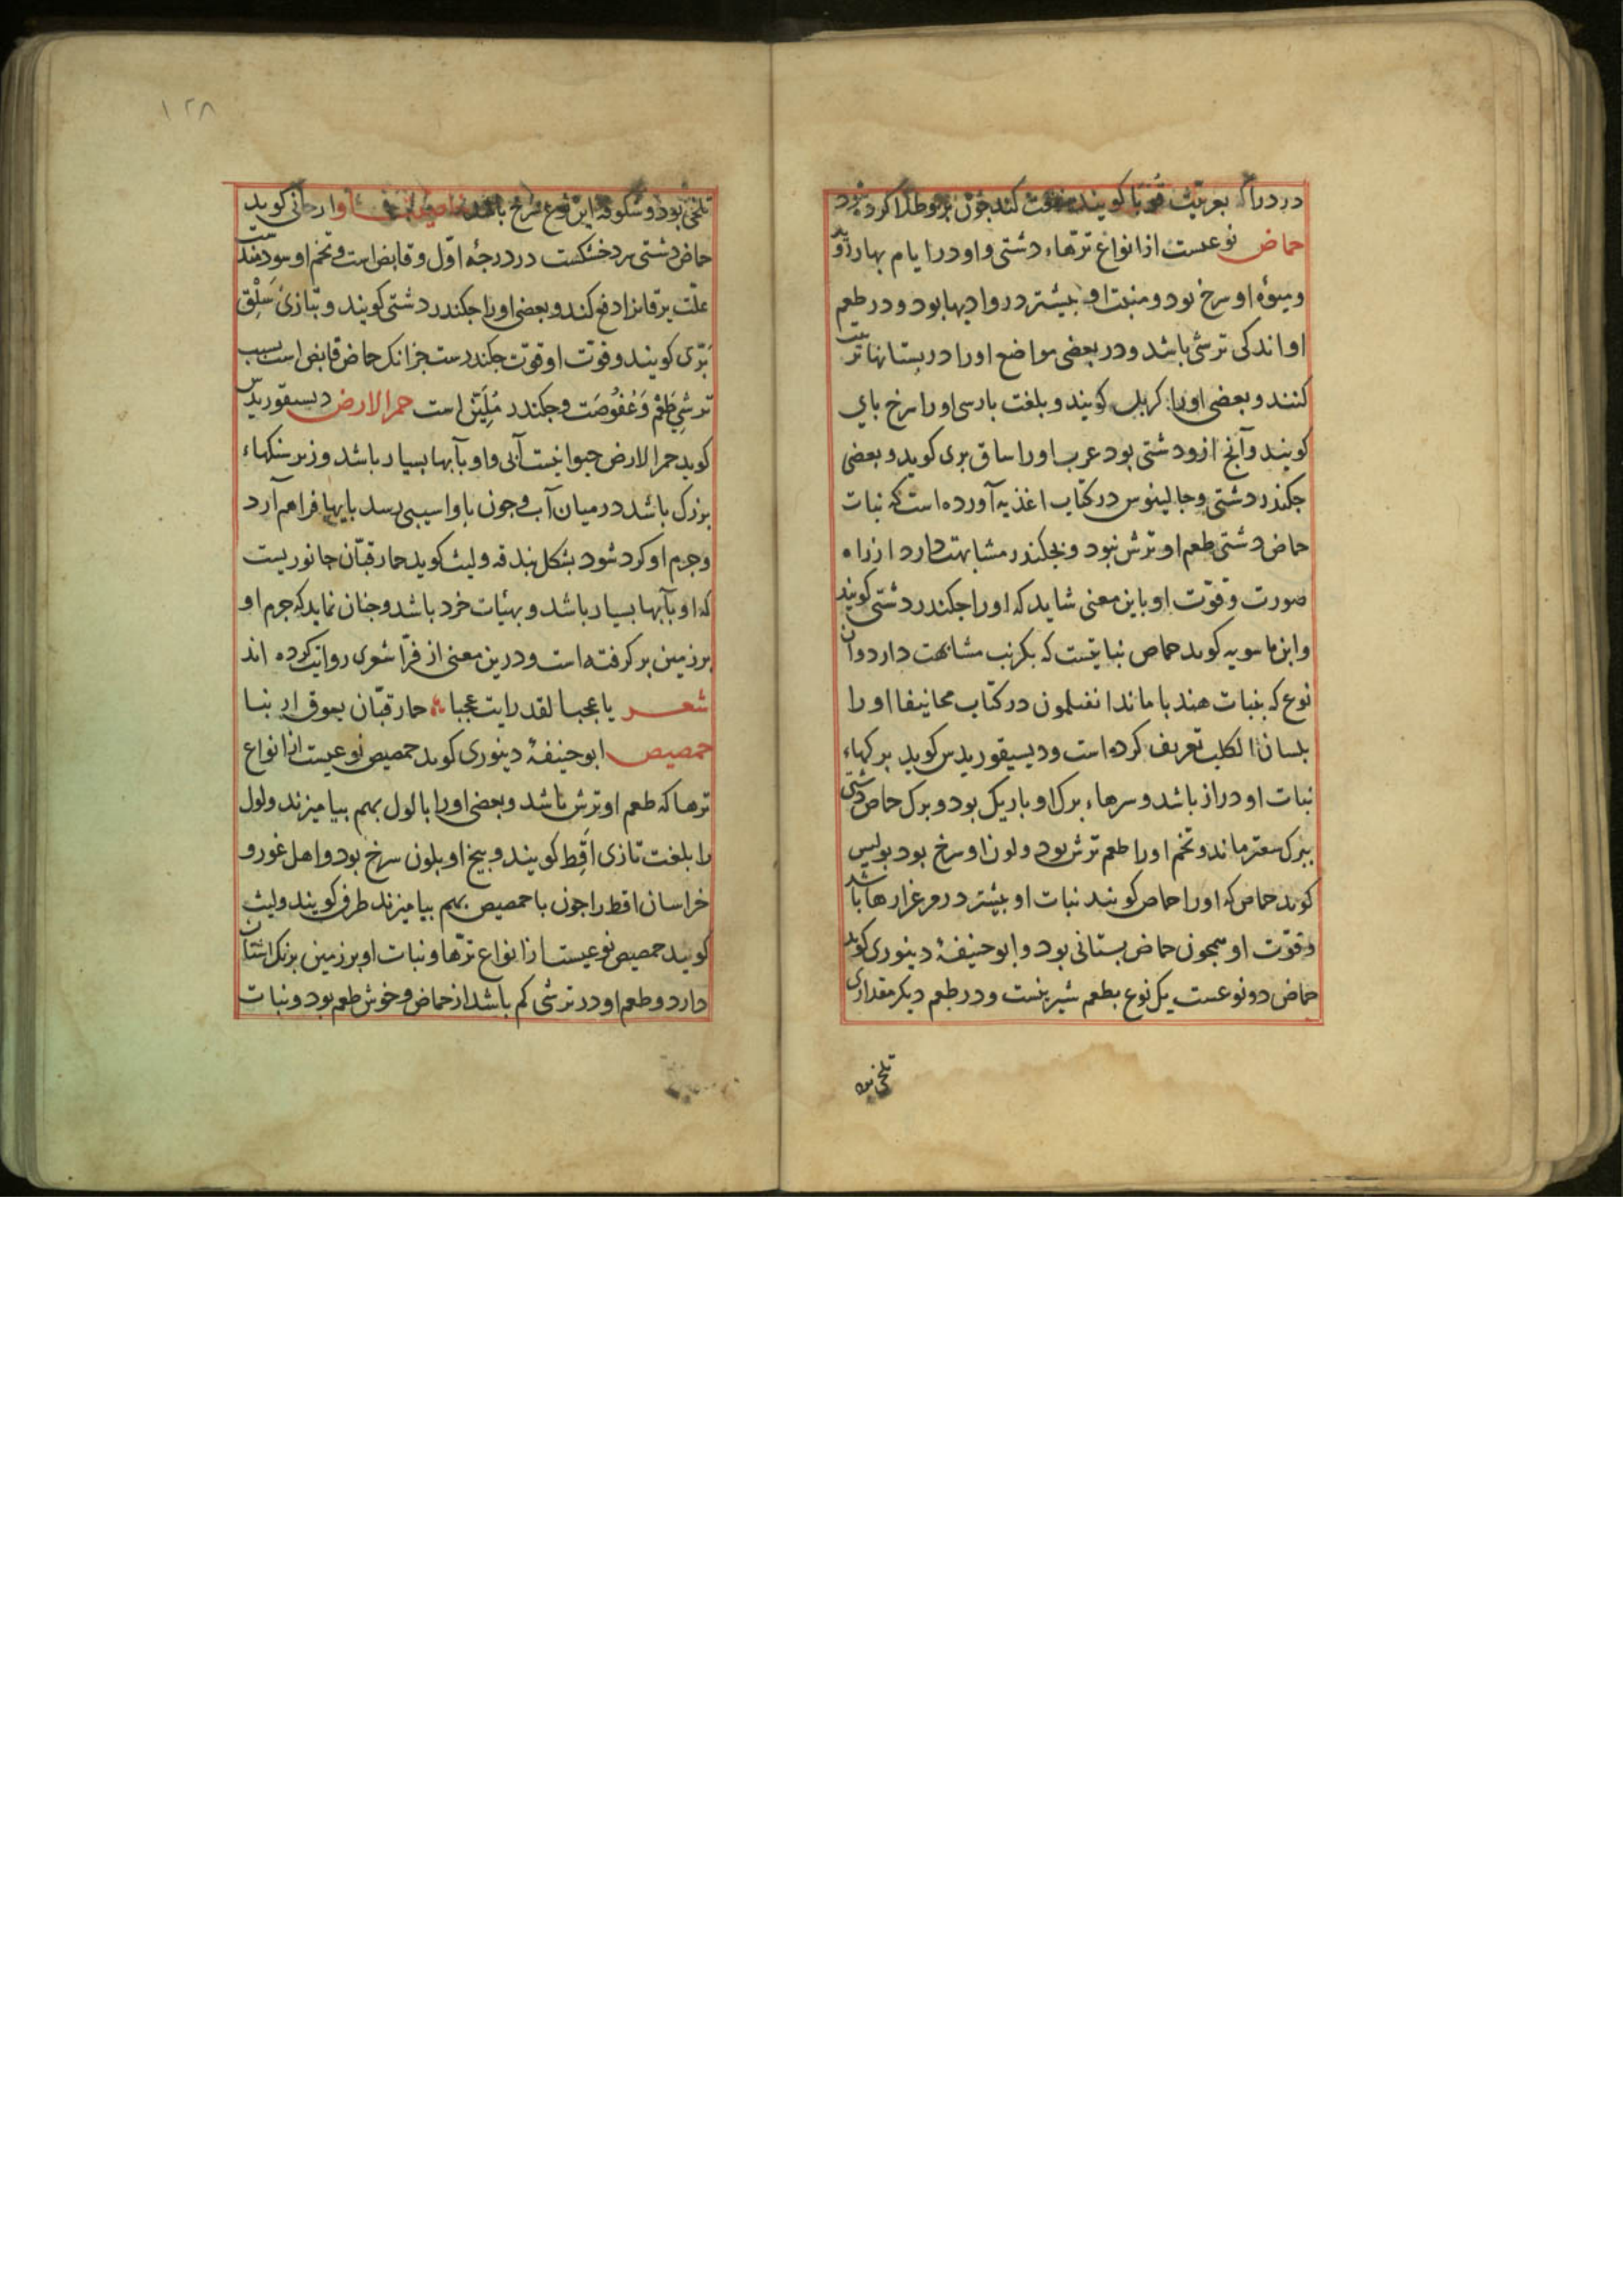 درد را که بعربیت قوبا کویند منفعت کند چون برو طلا کرده شود
حماض نوعست از انواع ترّهاء دشتی و او در ایام بهار روید
و میوهٔ او سرخ بود و منبت او بیشتر در وادیها بود و در طعم
او اندکی ترشی باشد و در بعضی مواضع او را در بستانها تربیت
کنند و بعضی او را کویند و بلغت بارسی او را سرخ بای
کویند و آنچ ازو دشتی بود عرب او را ساق بری کوید و بعضی
جکندر دشتی و جالینوس در کتاب اغذیه آورده است که نبات
حماض دشتی طعم او ترش نبود و بجکندر مشابهت دارد از راه
صورت و قوّت او باین معنی شاید که او را جکندر دشتی کویند
و ابن ماسویه کوید حماض نباتیست که بکرنب مشابهت دارد و آن
نوع که بنبات هندبا ماند در کتاب او را
بلسان الکلب تعریف کرده است و دیسیقوریدس کوید برکهاء
نبات او دراز باشد و سرهاء برک او باریک بود و برک حماض دشتی
ببرک سعتر ماند و تخم او را طعم ترش بود و لون او سرخ بود بولیس
کوید حماض که او را حماض کویند نبات او بیشتر در مرغزارها باشد
و قوّت او همجون حماض بستانی بود و ابو حنیفهٔ دینوری کوید
حماض دو نوعست یک نوع بطعم شیرینست و در طعم دیکر مقداری
تلخی بود
۱۲۸
تلخی بود و شکوفهٔ این نوع سرخ باشد ارجانی کوید
حماض دشتی سرد خشکست در درجهٔ اوّل و قابض است و تخم او سودمندست
علّت یرقانرا دفع کند و بعضی او را جکندر دشتی کویند و بتازی سَلْق
برّی کویند و قوّت او قوّت جکندرست جز انک حماض قابض است بسبب
ترشی طَعْم وَ عُفُوصَت و جکندر مُلَیِّن است حمر الارض دیسقوریدس
کوید حمر الارض حیوانیست آبی و او بآبها بسیار باشد و زیر سنکهاء
بزرک باشد در میان آب و جون باو اسیبی رسد بایها فراهم آرد
و جرم او کرد شود بشکل بندقه و لیث کوید حمار قبّان جانوریست
که او بآبها بسیار باشد و بهیٔات خرد باشد و جنان نماید که جرم او
بر زمین برکرفته است و درین معنی از فرّا شعری روایت کرده اند
شعر یا عجبا لقد رایت عجبا حمار قبّان یسوق ارنبا
حمصیص ابو حنیفهٔ دینوری کوید حمصیص نوعیست از انواع
ترها که طعم او ترش باشد و بعضی او را با لول بهم بیامیزند و لول
را بلغت تازی اَقِط کویند و بیخ او بلون سرخ بود و اهل غور و
خراسان اقط را جون با حمصیص بهم بیامیزند طرف کویند و لیث
کوید حمصیص نوعیست از انواع ترّها و نبات او بر زمین برنک اشنان
دارد و طعم او در ترشی کم باشد از حماض و خوش طعم بود و نبات